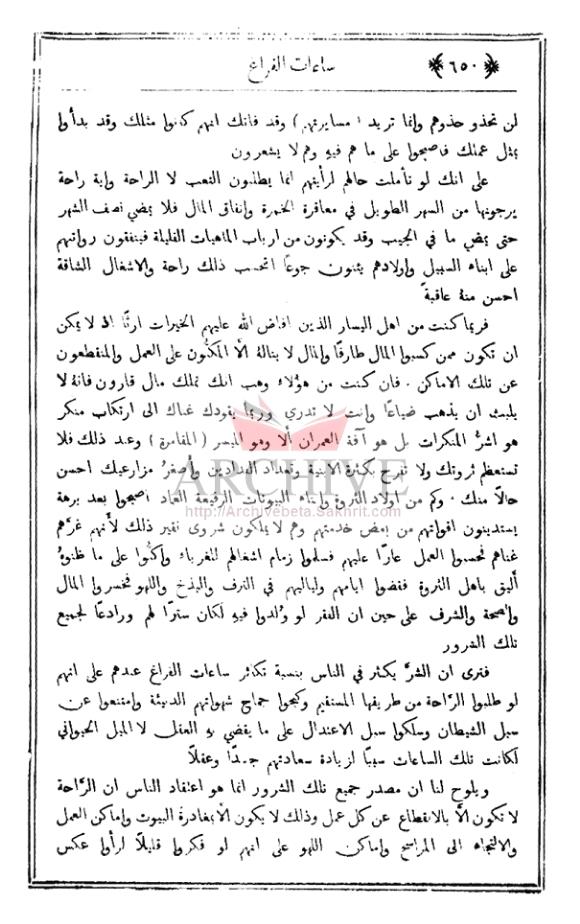 ﴿٦٥٠﴾ ساعات الفراغ
لن تحذو حذوهم وانما تريد (مسايرتهم) وقد فاتك انهم كانوا مثلك وقد بدأوا
بمثل عملك فاصبحوا على ما هم فيهِ وهم لا يشعرون
على انك لو تأملت حالهم لرأيتهم انما يطلبون التعب لا الراحة واية راحة
يرجونها من السهر الطويل في معاقرة الخمرة وانفاق المال فلا يمضي نصف الشهر
حتى يمضي ما في الجيب وقد يكونون من ارباب الماهيات القليلة فينفقون رواتبهم
على ابناء السبيل واولادهم يئنون جوعًا اتحسب ذلك راحة والاشغال الشاقة
احسن منهُ عاقبةً
فربما كنت من اهل اليسار الذين افاض الله عليهم الخيرات ارثًا اذ لا يمكن
ان تكون ممن كسبوا المال طارفًا والمال لا ينالهُ الَّا المكبُّون على العمل والمنقطعون
عن تلك الاماكن . فان كنت من هؤلاء وهب انك تملك مال قارون فانهُ لا
يلبث ان يذهب ضياعًا وانت لا تدري وربما يقودك غناك الى ارتكاب منكر
هو اشرُّ المنكرات بل هو آفة العمران ألا وهو الميسر (المقامرة) وعند ذلك فلا
تستعظم ثروتك ولا تفرح بكثرة الابنية وتعداد الفدادين وأصغرُ مزارعيك احسن
حالًا منك . وكم من اولاد الثروة وابناء البيوتات الرفيعة العماد اصبحوا بعد برهة
يستدينون اقواتهم من بعض خدمتهم وهم لا يملكون شروى نقير ذلك لأنهم غرَّهم
غناهم فحسبوا العمل عارًا عليهم فسلموا زمام اشغالهم للغرباء واكبُّوا على ما ظنوهُ
أليق باهل الثروة فقضوا ايامهم ولياليهم في الترف والبذخ واللهو فخسروا المال
والصحة والشرف على حين ان الفقر لو وُلدوا فيهِ لكان سترًا لهم ورادعًا لجميع
تلك الشرور
فترى ان الشرَّ يكثر في الناس بنسبة تكاثر ساعات الفراغ عندهم على انهم
لو طلبوا الرَّاحة من طريقها المستقيم وكبحوا جماح شهواتهم الدنيئة وامتنعوا عن
سبل الشيطان وسلكوا سبل الاعتدال على ما يقضي بهِ العقل لا الميل الحيواني
لكانت تلك الساعات سببًا لزيادة سعادتهم جسدًا وعقلًا
ويلوح لنا ان مصدر جميع تلك الشرور انما هو اعتقاد الناس ان الرَّاحة
لا تكون الَّا بالانقطاع عن كل عمل وذلك لا يكون الَّا بمغادرة البيوت واماكن العمل
والالتجاء الى المراسح واماكن اللهو على انهم لو فكروا قليلًا لرأوا عكس
ARCHIVE
http://Archivebeta.Sakhrit.com